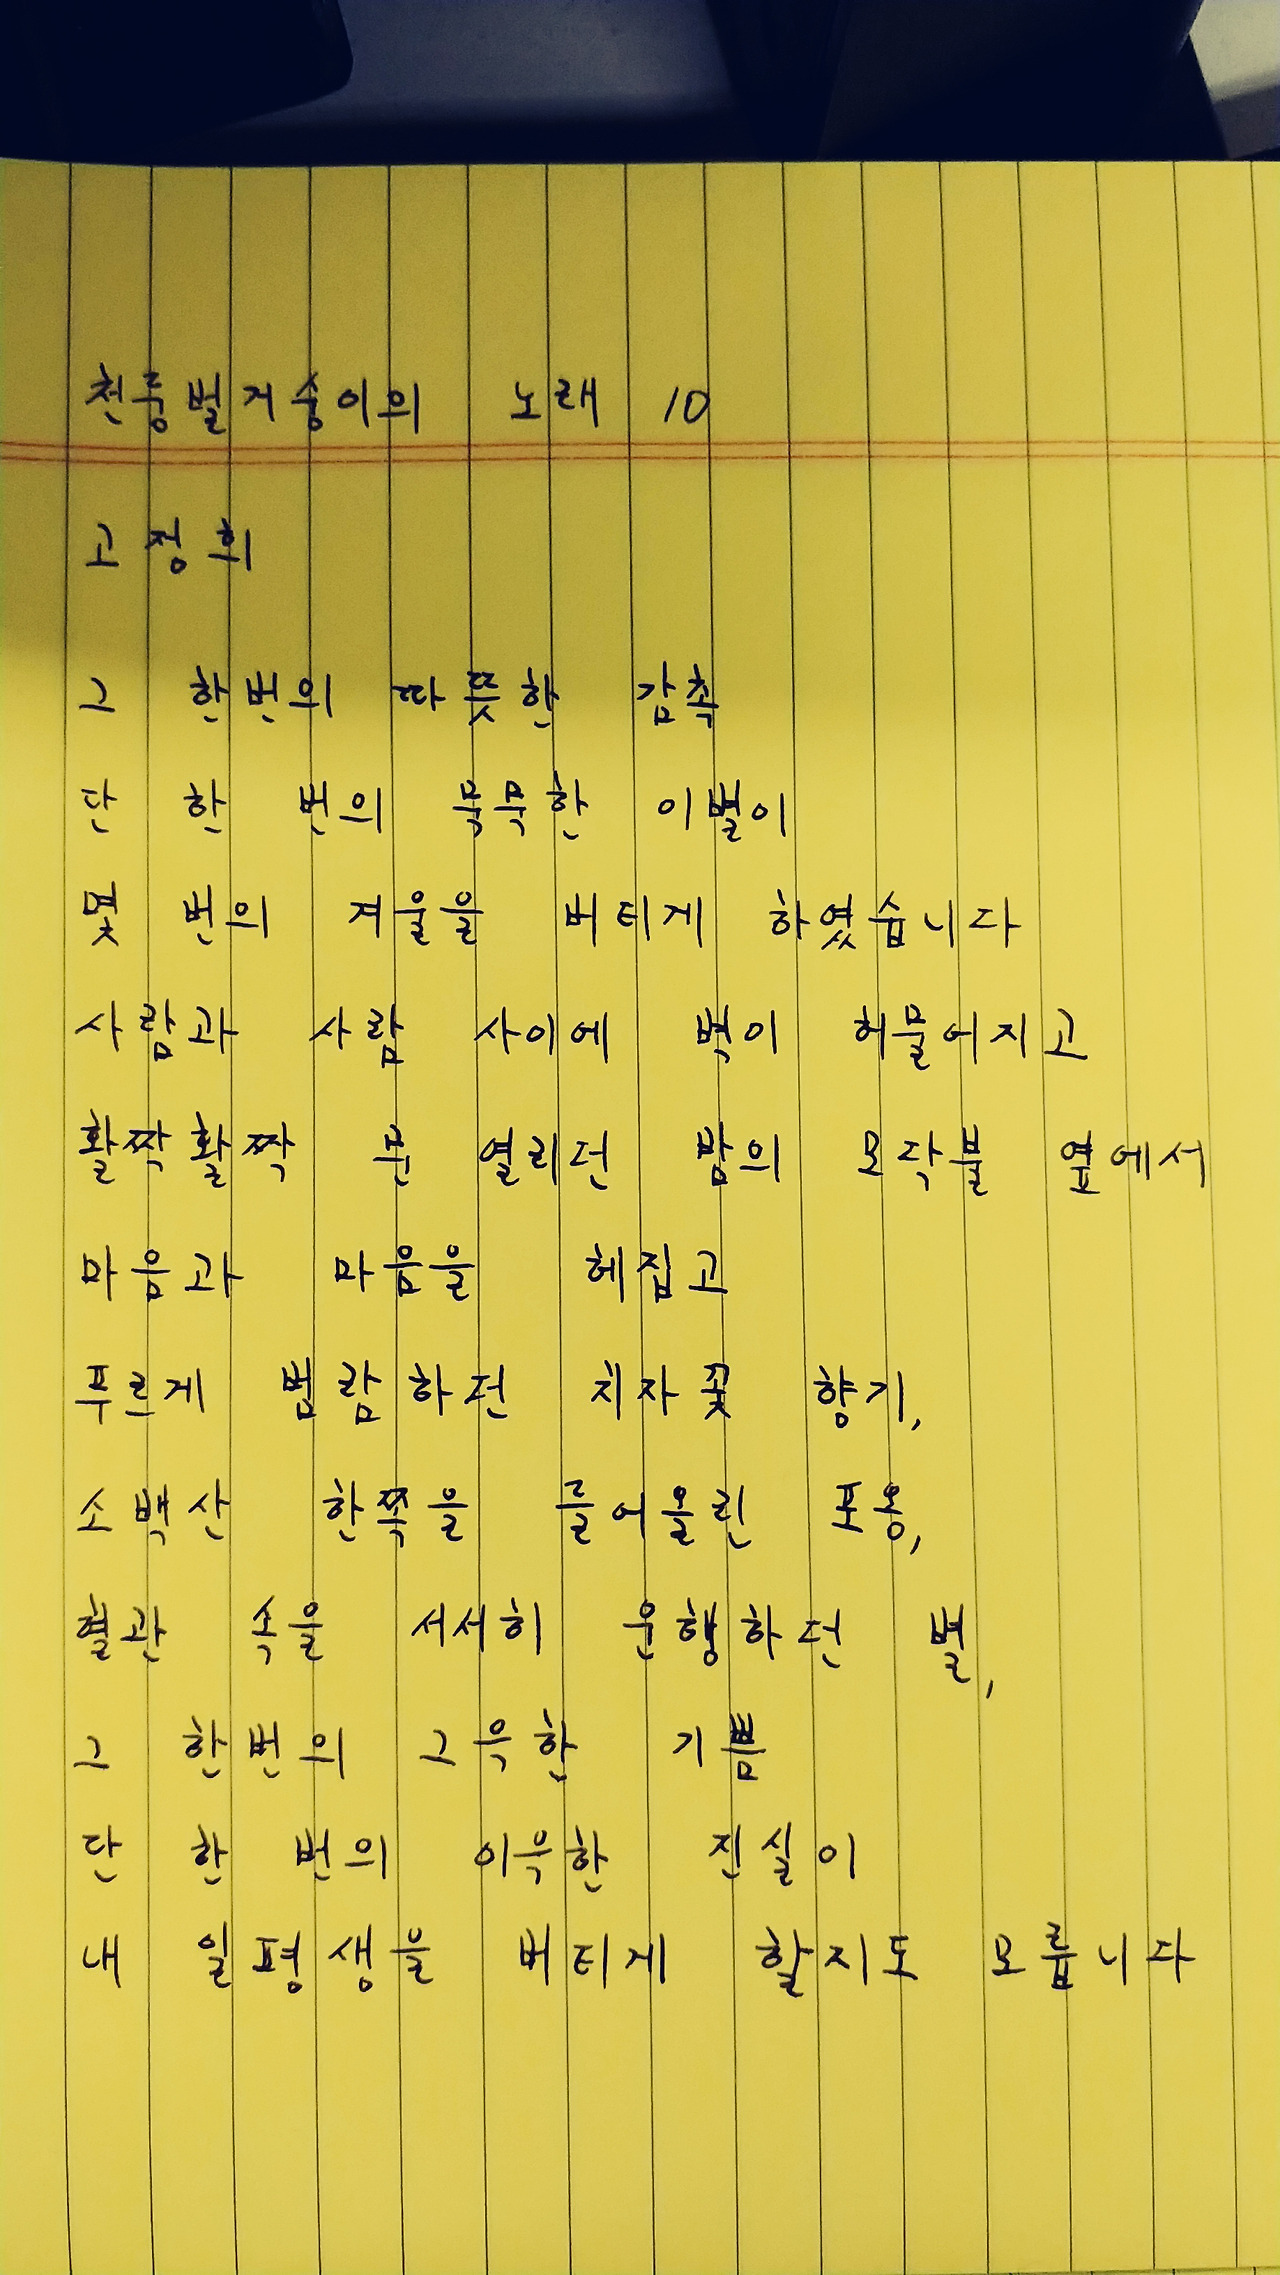 천둥벌거숭이의 노래 10
고정희
그 한번의 따뜻한 감촉
단 한 번의 묵묵한 이별이
몇 번의 겨울을 버티게 하였습니다
사람과 사람 사이에 벽이 허물어지고
활짝활짝 문 열리던 밤의 모닥불 옆에서
마음과 마음을 헤집고
푸르게 범람하던 치자꽃 향기,
소백산 한쪽을 들어올린 포옹,
혈관 속을 서서히 운행하던 별,
그 한번의 그윽한 기쁨
단 한 번의 이윽한 진실이
내 일평생을 버티게 할지도 모릅니다